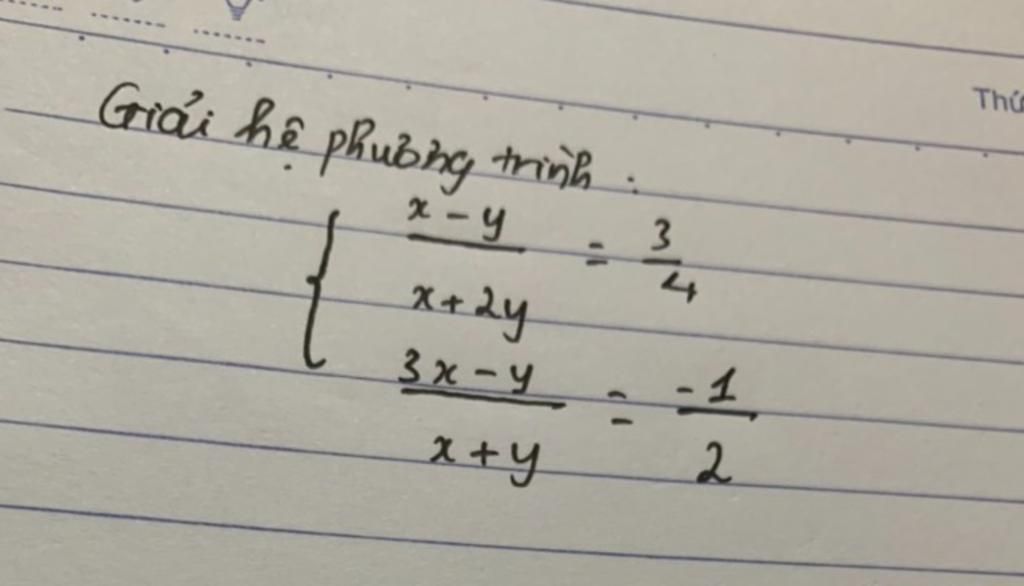 Thứ
Giải hệ phương trình :
{ x - y / x + 2y = 3 / 4
3x - y / x + y = -1 / 2